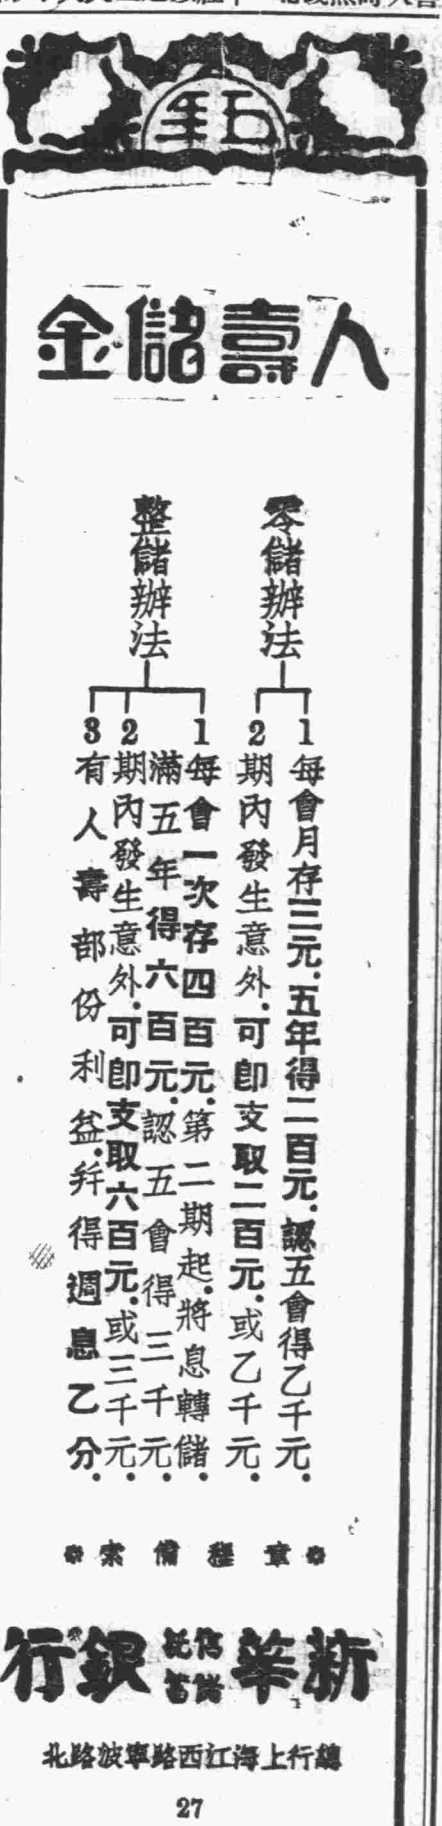 人壽儲金
零儲辦法
1
每會月存三元.五年得二百元.認五會得乙千元.
2
期內發生意外.可卽支取二百元.或乙千元.
整儲辦法
1
每會一次存四百元.第二期起.將息轉儲.
滿五年得六百元.認五會得三千元.
2
期內發生意外.可卽支取六百元.或三千元.
3
有人壽部份利益.幷得週息乙分.
章程備索
新華信託儲蓄銀行
總行上海江西路寧波路北
27